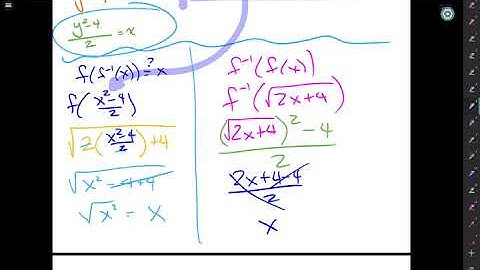 y²-4/2 = x
f(f⁻¹(x)) ≟ x
f(x²-4/2)
√2(x²-4/2)+4
√x²-4+4
√x² = x
f⁻¹(f(x))
f⁻¹(√2x+4)
(√2x+4)²-4/2
2x+4-4/2
x